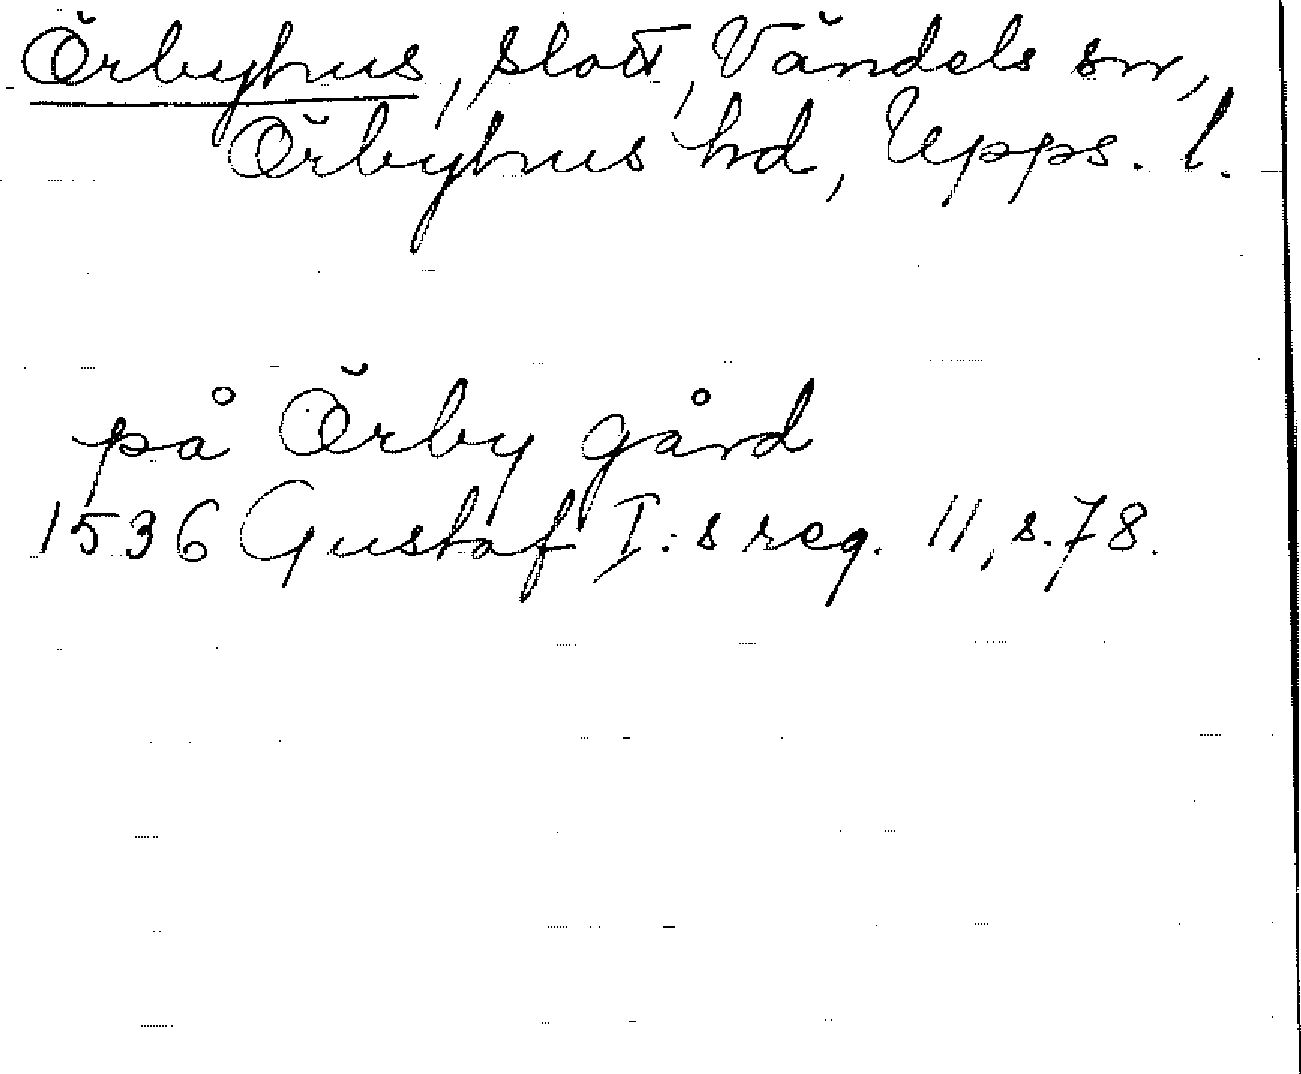 Örbyhus, slott, Vändels sn,
Örbyhus hd, Upps. l.
på Örby gård
1536 Gustaf I:s reg. 11, s. 78.